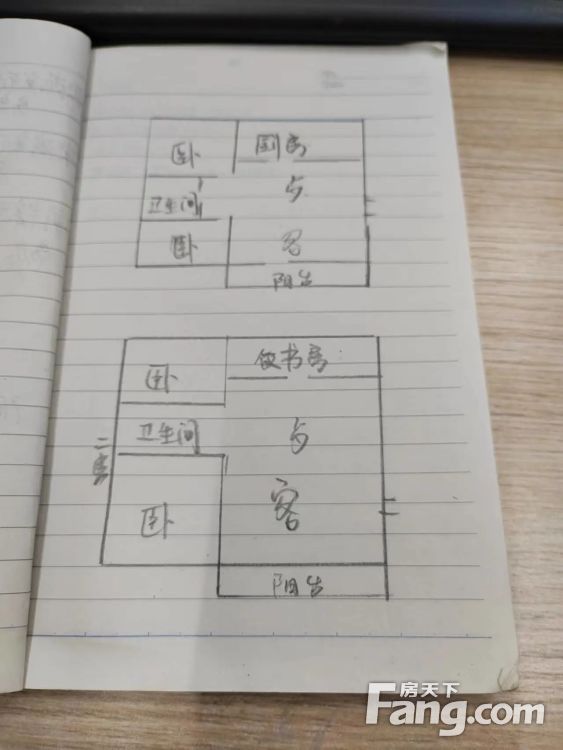 卧
卫生间
卧
客
阳台
书房
卧
卫生间
二房
卧
客
阳台
房天下
Fang.com